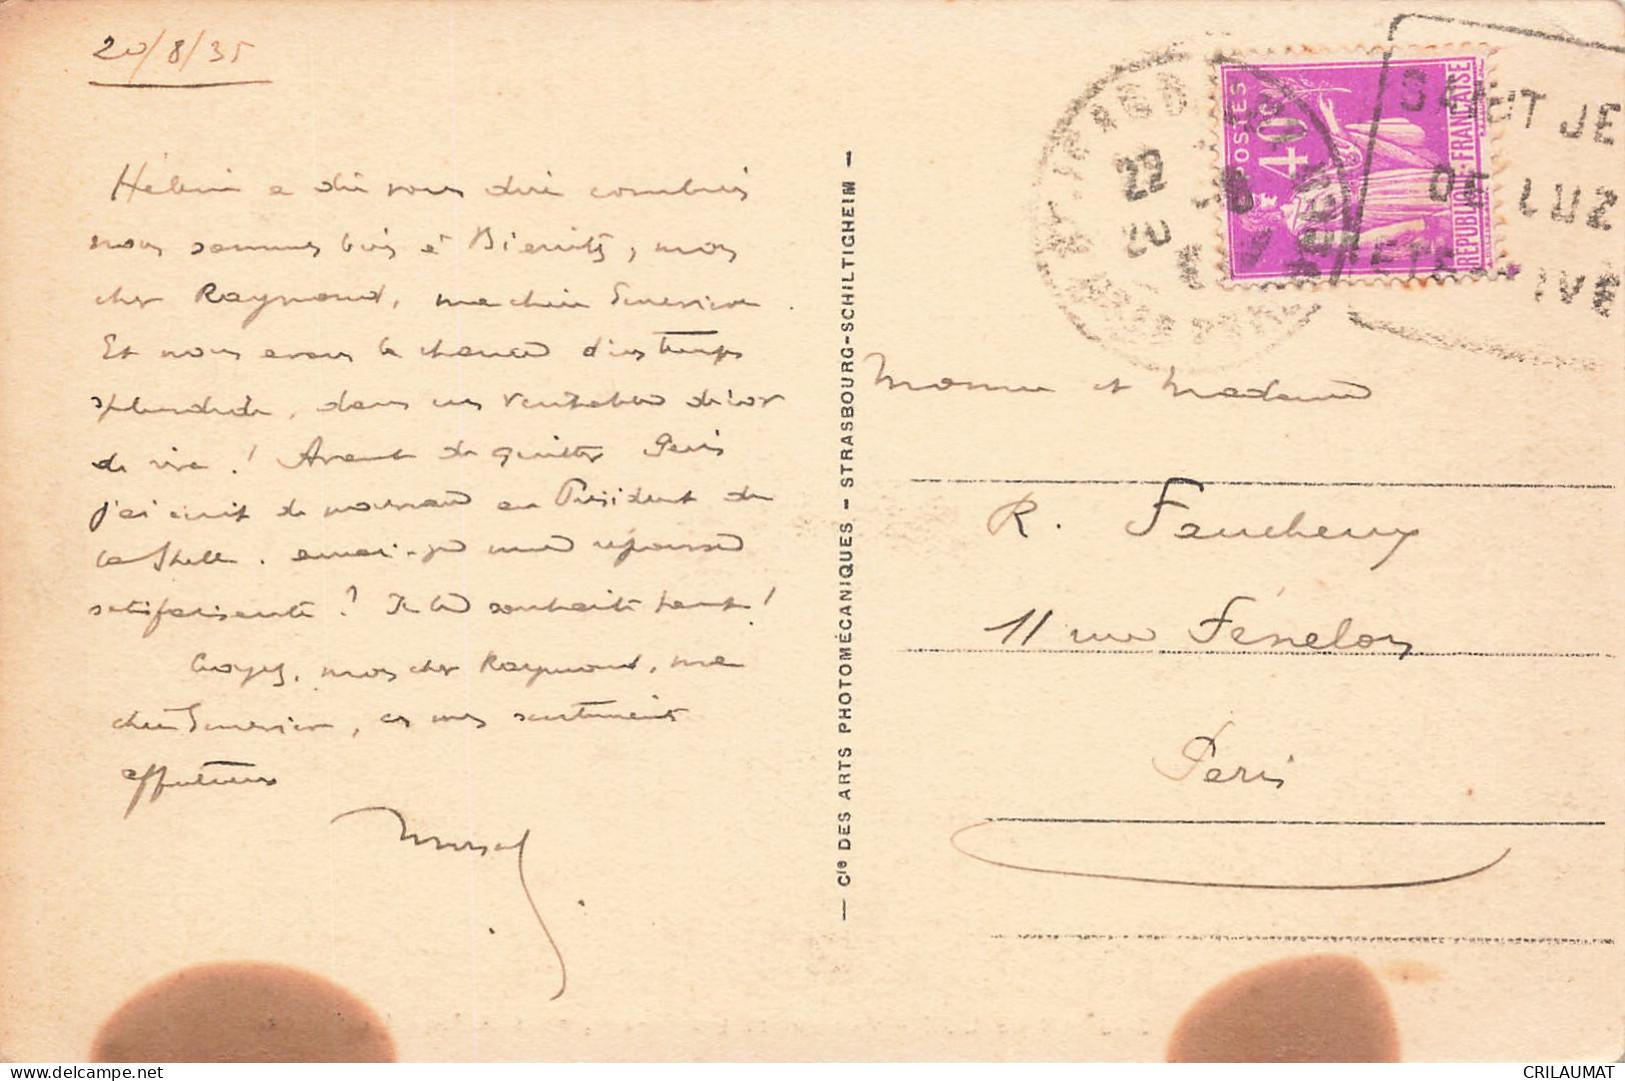 20/8/35
Hélène a dû vous dire combien
nous sommes bien à Biarritz, mon
cher Raymond, ma chère
Et nous avons la chance d'un temps
splendide, dans un véritable décor
de rêve ! Avant de quitter Paris
j'ai écrit de nouveau au Président de
la Shell. aurai-je une réponse
satisfaisante ? Je le souhaite tant !
Croyez, mon cher Raymond, ma
chère, à mes sentiments
affectueux
— Cie DES ARTS PHOTOMÉCANIQUES - STRASBOURG-SCHILTIGHEIM —
POSTES
40c
RÉPUBLIQUE-FRANÇAISE
22
20
SAINT JE
DE LUZ
Monsieur et Madame
R. Faucheux
11 rue Fénelon
Paris
CRILAUMAT